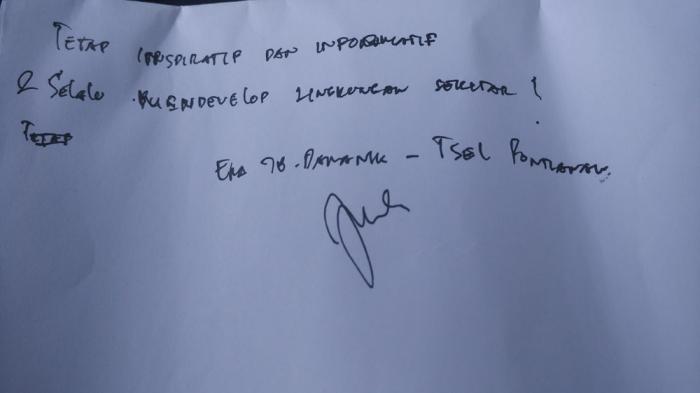 TETAP INSPIRATIF DAN INFORMATIF
& SELALU MENDEVELOP LINGKUNGAN SEKITAR !
EKA 98. DAMANIK - TSEL PONTIANAK.